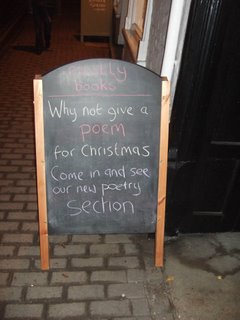 Mostly
books
Why not give a
poem
for Christmas
Come in and see
our new poetry
section